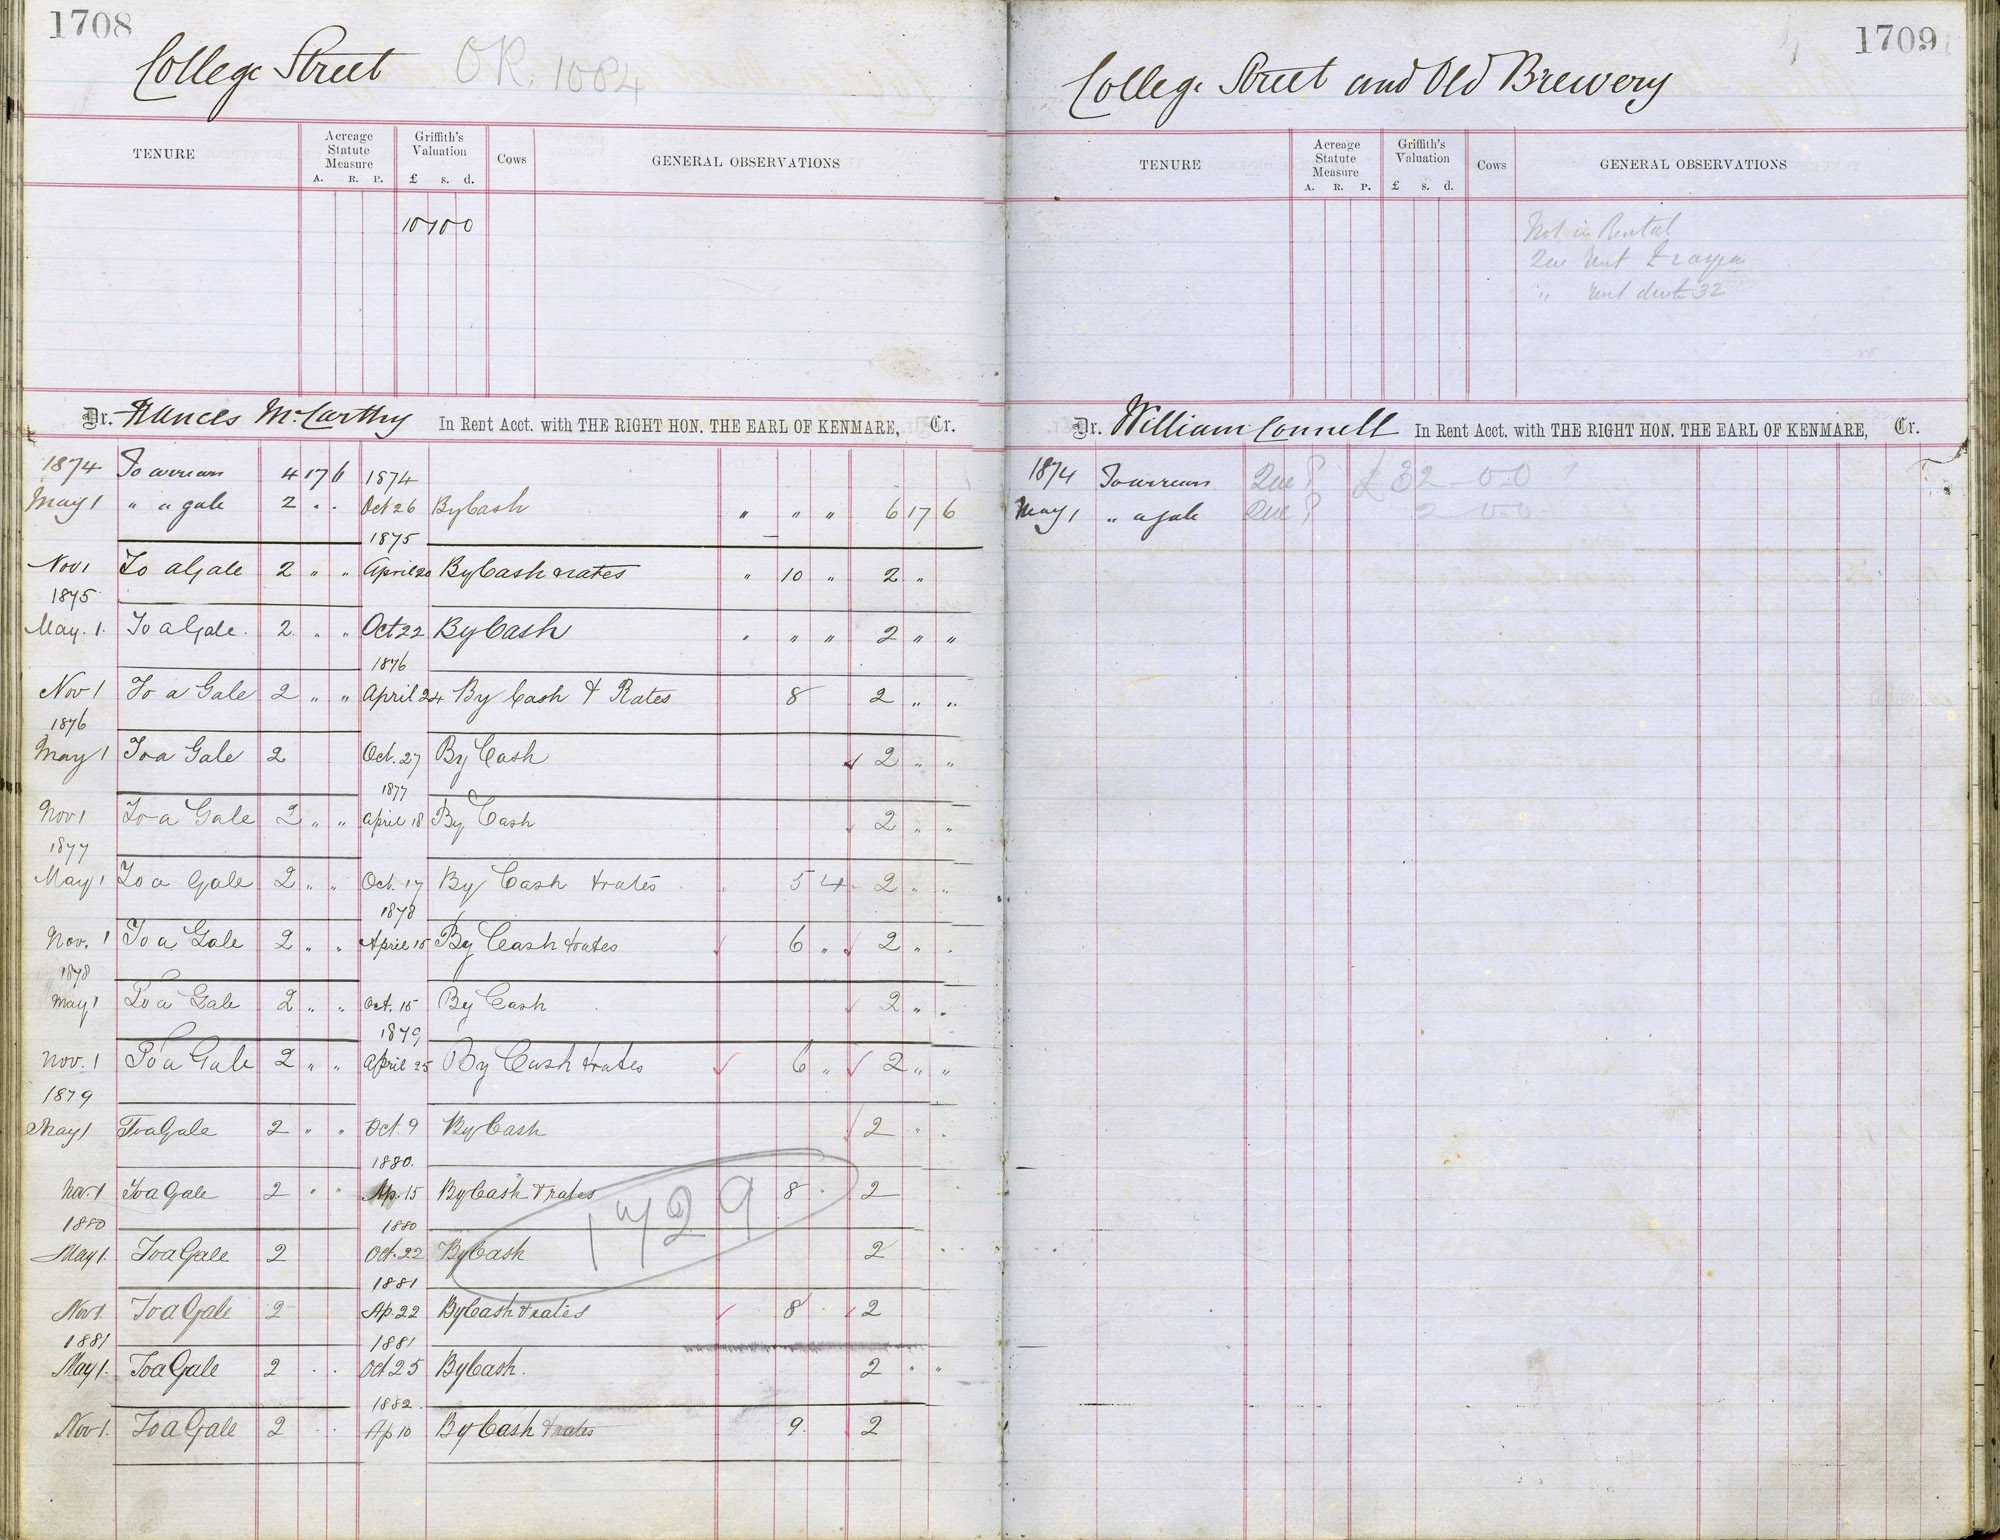 1708
College Street OR. 1084
TENURE Acreage Statute Measure A. R. P. Griffith's Valuation £ s. d. Cows GENERAL OBSERVATIONS
10 10 0
Dr. Frances McCarthy In Rent Acct. with THE RIGHT HON. THE EARL OF KENMARE, Cr.
1874 To arrears 4 17 6 1874
May 1 " a gale 2 . . Oct 26 By Cash " " " 6 17 6
1875
Nov 1 To a Gale 2 " " April 20 By Cash & rates " 10 " 2 "
1875
May. 1. To a Gale. 2. " " Oct 22 By Cash " " " 2 " "
1876
Nov 1 To a Gale 2 " " April 24 By Cash & Rates 8 2 " "
1876
May 1 To a Gale 2 Oct. 27 By Cash 2 " "
1877
Nov 1 To a Gale 2 " " April 18 By Cash 2 " "
1877
May 1 To a Gale 2 " " Oct. 17 By Cash & rates " 5 4 2 " "
1878
Nov. 1 To a Gale 2 " " April 15 By Cash & rates 6 " 2 " .
1878
May 1 To a Gale 2 " " Oct. 15 By Cash 2 " .
1879
Nov. 1 To a Gale 2 " " April 25 By Cash & rates 6 " 2 " "
1879
May 1 To a Gale 2 " " Oct. 9 By Cash 2 " .
1880.
Nov. 1 To a Gale 2 " " Ap. 15 By Cash & rates 8 . 2
1880 1880
May 1. To a Gale 2 Oct. 22 By Cash 2
1729
1881
Nov 1 To a Gale 2 Ap. 22 By Cash & rates 8 . 2
1881 1881
May 1. To a Gale 2 . . Oct 25 By Cash. 2 " "
1882.
Nov 1. To a Gale 2 . . Ap 10 By Cash & rates 9. 2
1709
College Street and Old Brewery
TENURE Acreage Statute Measure A. R. P. Griffith's Valuation £ s. d. Cows GENERAL OBSERVATIONS
Not in Rental
Que rent £
" rent
Dr. William Connell In Rent Acct. with THE RIGHT HON. THE EARL OF KENMARE, Cr.
1874 To arrears Que? £32-0-0 ?
May 1 " a gale Que? 2 0-0